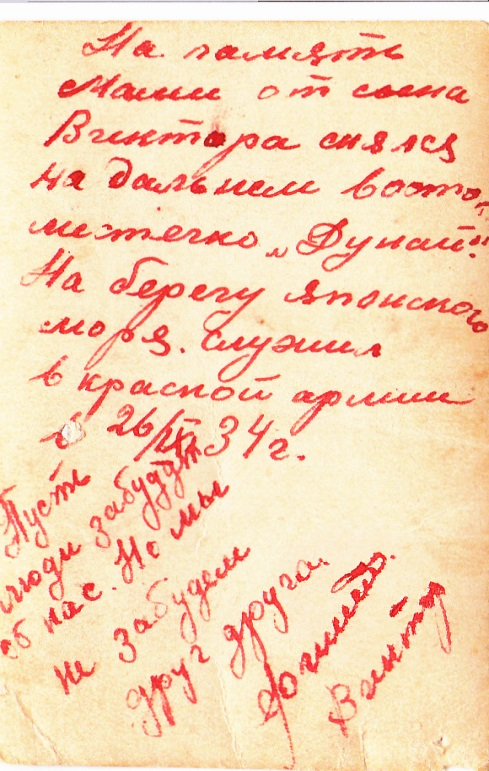 На память
Мами от сына
Виктора снялся
на дальнем восто
местечко „Дунай".
На берегу японского
моря. служил
в красной армии
26/ 34 г.
Пусть
люди забудут
об нас. Но мы
не забудем
друг друга.
Виктр